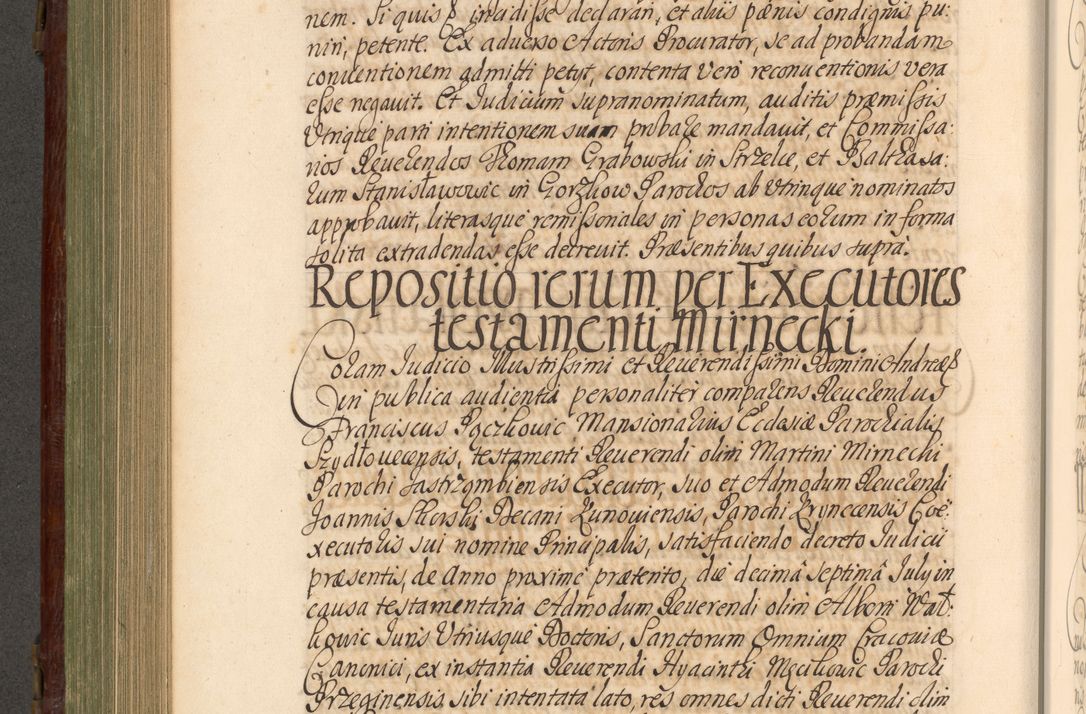 nem. Si quis &c incidisse declarari, et aliis pænis condignis pu:
niri, petente. Ex adverso Actoris Procurator, se ad probandam
conventionem admitti petyt, contenta vero reconventionis vera
esse negavit. Et Judicium supranominatum, auditis præmissis
Utrique parti intentionem suam probare mandavit, et Commissa:
rios Reverendos Thomam Grabowski in Strzelce, et Balthasa:
rum Stanisławowic in Gorzkow Parochos ab utrinque nominatos
approbavit, literasque remissionales in personas eorum in forma
solita extradendas esse decrevit. Præsentibus quibus supra.
Repositio rerum per Executores
testamenti Mirnecki
Coram Judicio Illustrissimi et Reverendissimi Domini Andreæ &c
in publica audientia personaliter comparens Reverendus
Franciscus Pączkowic Mansionarius Ecclesiæ Parochialis
Szydłoviecensis, testamenti Reverendi olim Martini Mirnecki
Parochi Jastrzombiensis Executor, suo et Admodum Reverendi
Joannis Skerski Decani Zynoviensis, Parochi Krynecensis Coë:
xecutoris sui nomine Principalis, satisfaciendo decreto Judicii
præsentis, de Anno proxime præterito, die decimâ septimâ July in
causa testamentaria Admodum Reverendi olim Alberti Wat:
kowic Juris Utriusque Doctoris, Sanctorum Omnium Cracoviæ
Canonici, ex instantia Reverendi Hyacinthi Męcikowic Parochi
Przeginensis, sibi intentata lato, res omnes dicti Reverendi olim